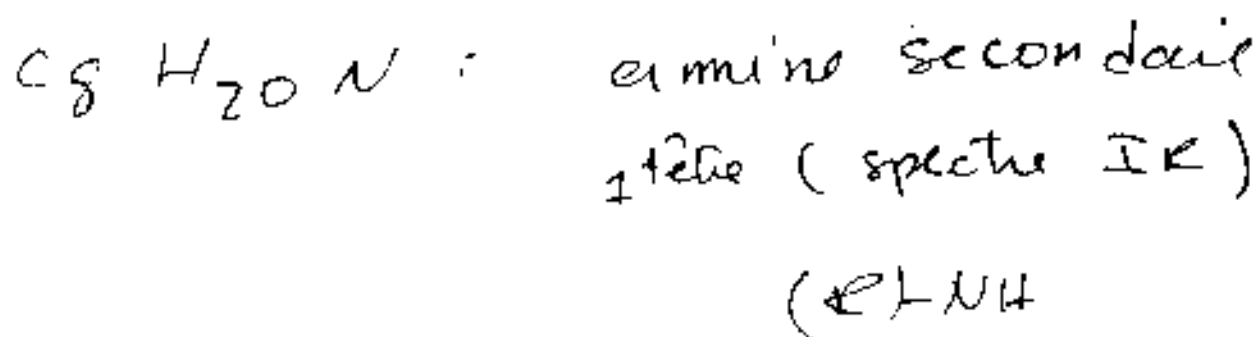 C8 H20 N : amine secondaire
1 tête (spectre IR)
(R)-NH